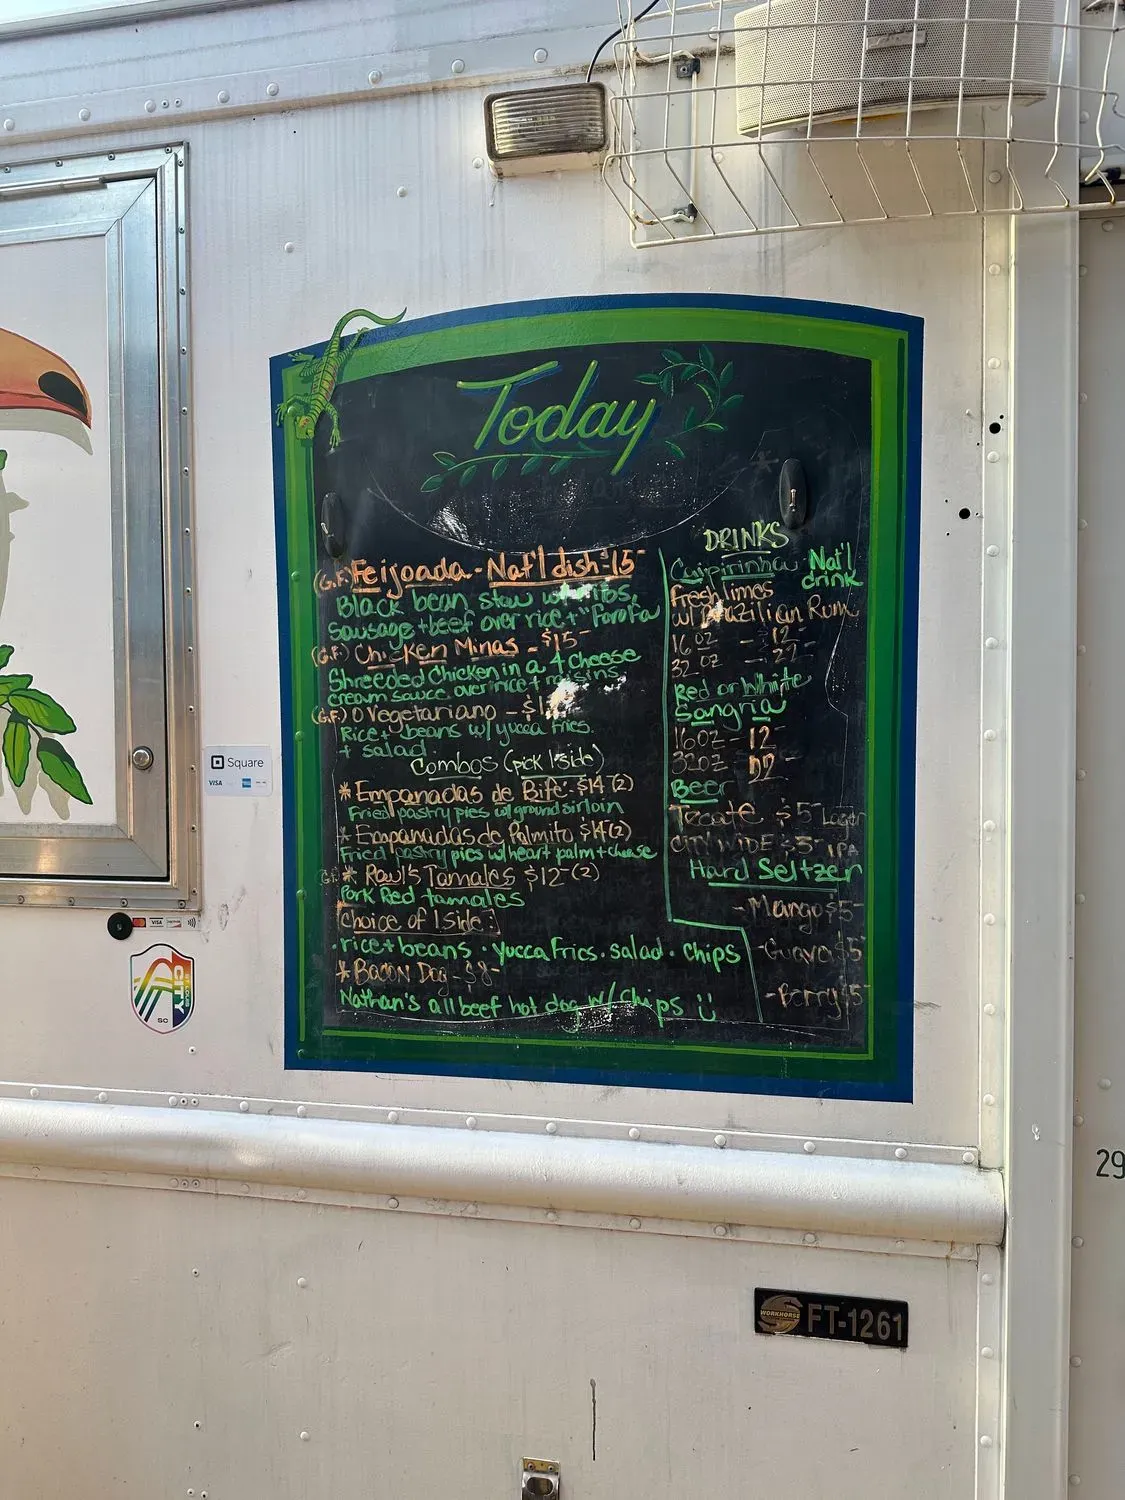 Today
(G.F.) Feijoada - Nat'l dish $15
Black bean stew ribs,
sausage + beef over rice + "Farofa"
(G.F.) Chicken Minas - $15
Shreeded Chicken in a 4 cheese
cream sauce over rice + raisins
(G.F.) O Vegetariano - $1
Rice + beans w/ yucca fries.
+ salad
Combos (pick 1 side)
* Empanadas de Bife - $14 (2)
Fried pastry pies w/ ground sirloin
* Empanadas de Palmito $14 (2)
Fried pastry pies w/ heart palm + cheese
G.F. * Raul's Tamales $12 (2)
Pork Red tamales
Choice of 1 side:
· rice + beans · yucca fries · salad · chips
* Bacon Dog - $8
Nathan's all beef hot dog w/ chips
DRINKS
Caipirinha Nat'l
drink
Fresh limes
w/ Brazilian Rum
16 oz - 12
32 oz - 22
Red or White
Sangria
16 oz - 12
32 oz - 22
Beer
Tecate $5 Lager
CITY WIDE $5 IPA
Hard Seltzer
- Mango $5
- Guava $5
- Berry $5
Square
VISA
VISA
CITY
SC
WORKHORSE
FT-1261
29